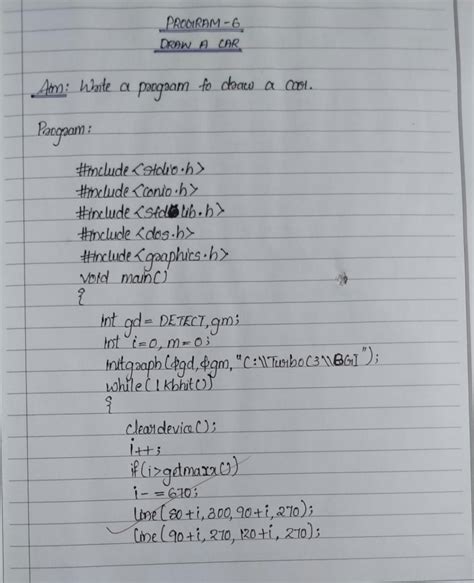 PROGRAM-6
DRAW A CAR
Aim: Write a program to draw a car.
Program:
#include<stdio.h>
#include<conio.h>
#include<stdlib.h>
#include<dos.h>
#include<graphics.h>
void main()
{
int gd= DETECT,gm;
int i=0, m=0;
initgraph(&gd,&gm,"C:\\TurboC3\\BGI");
while(!kbhit())
{
cleardevice();
i++;
if(i>getmaxx())
i-=670;
line(80+i,300,90+i,270);
line(90+i,270,120+i,270);